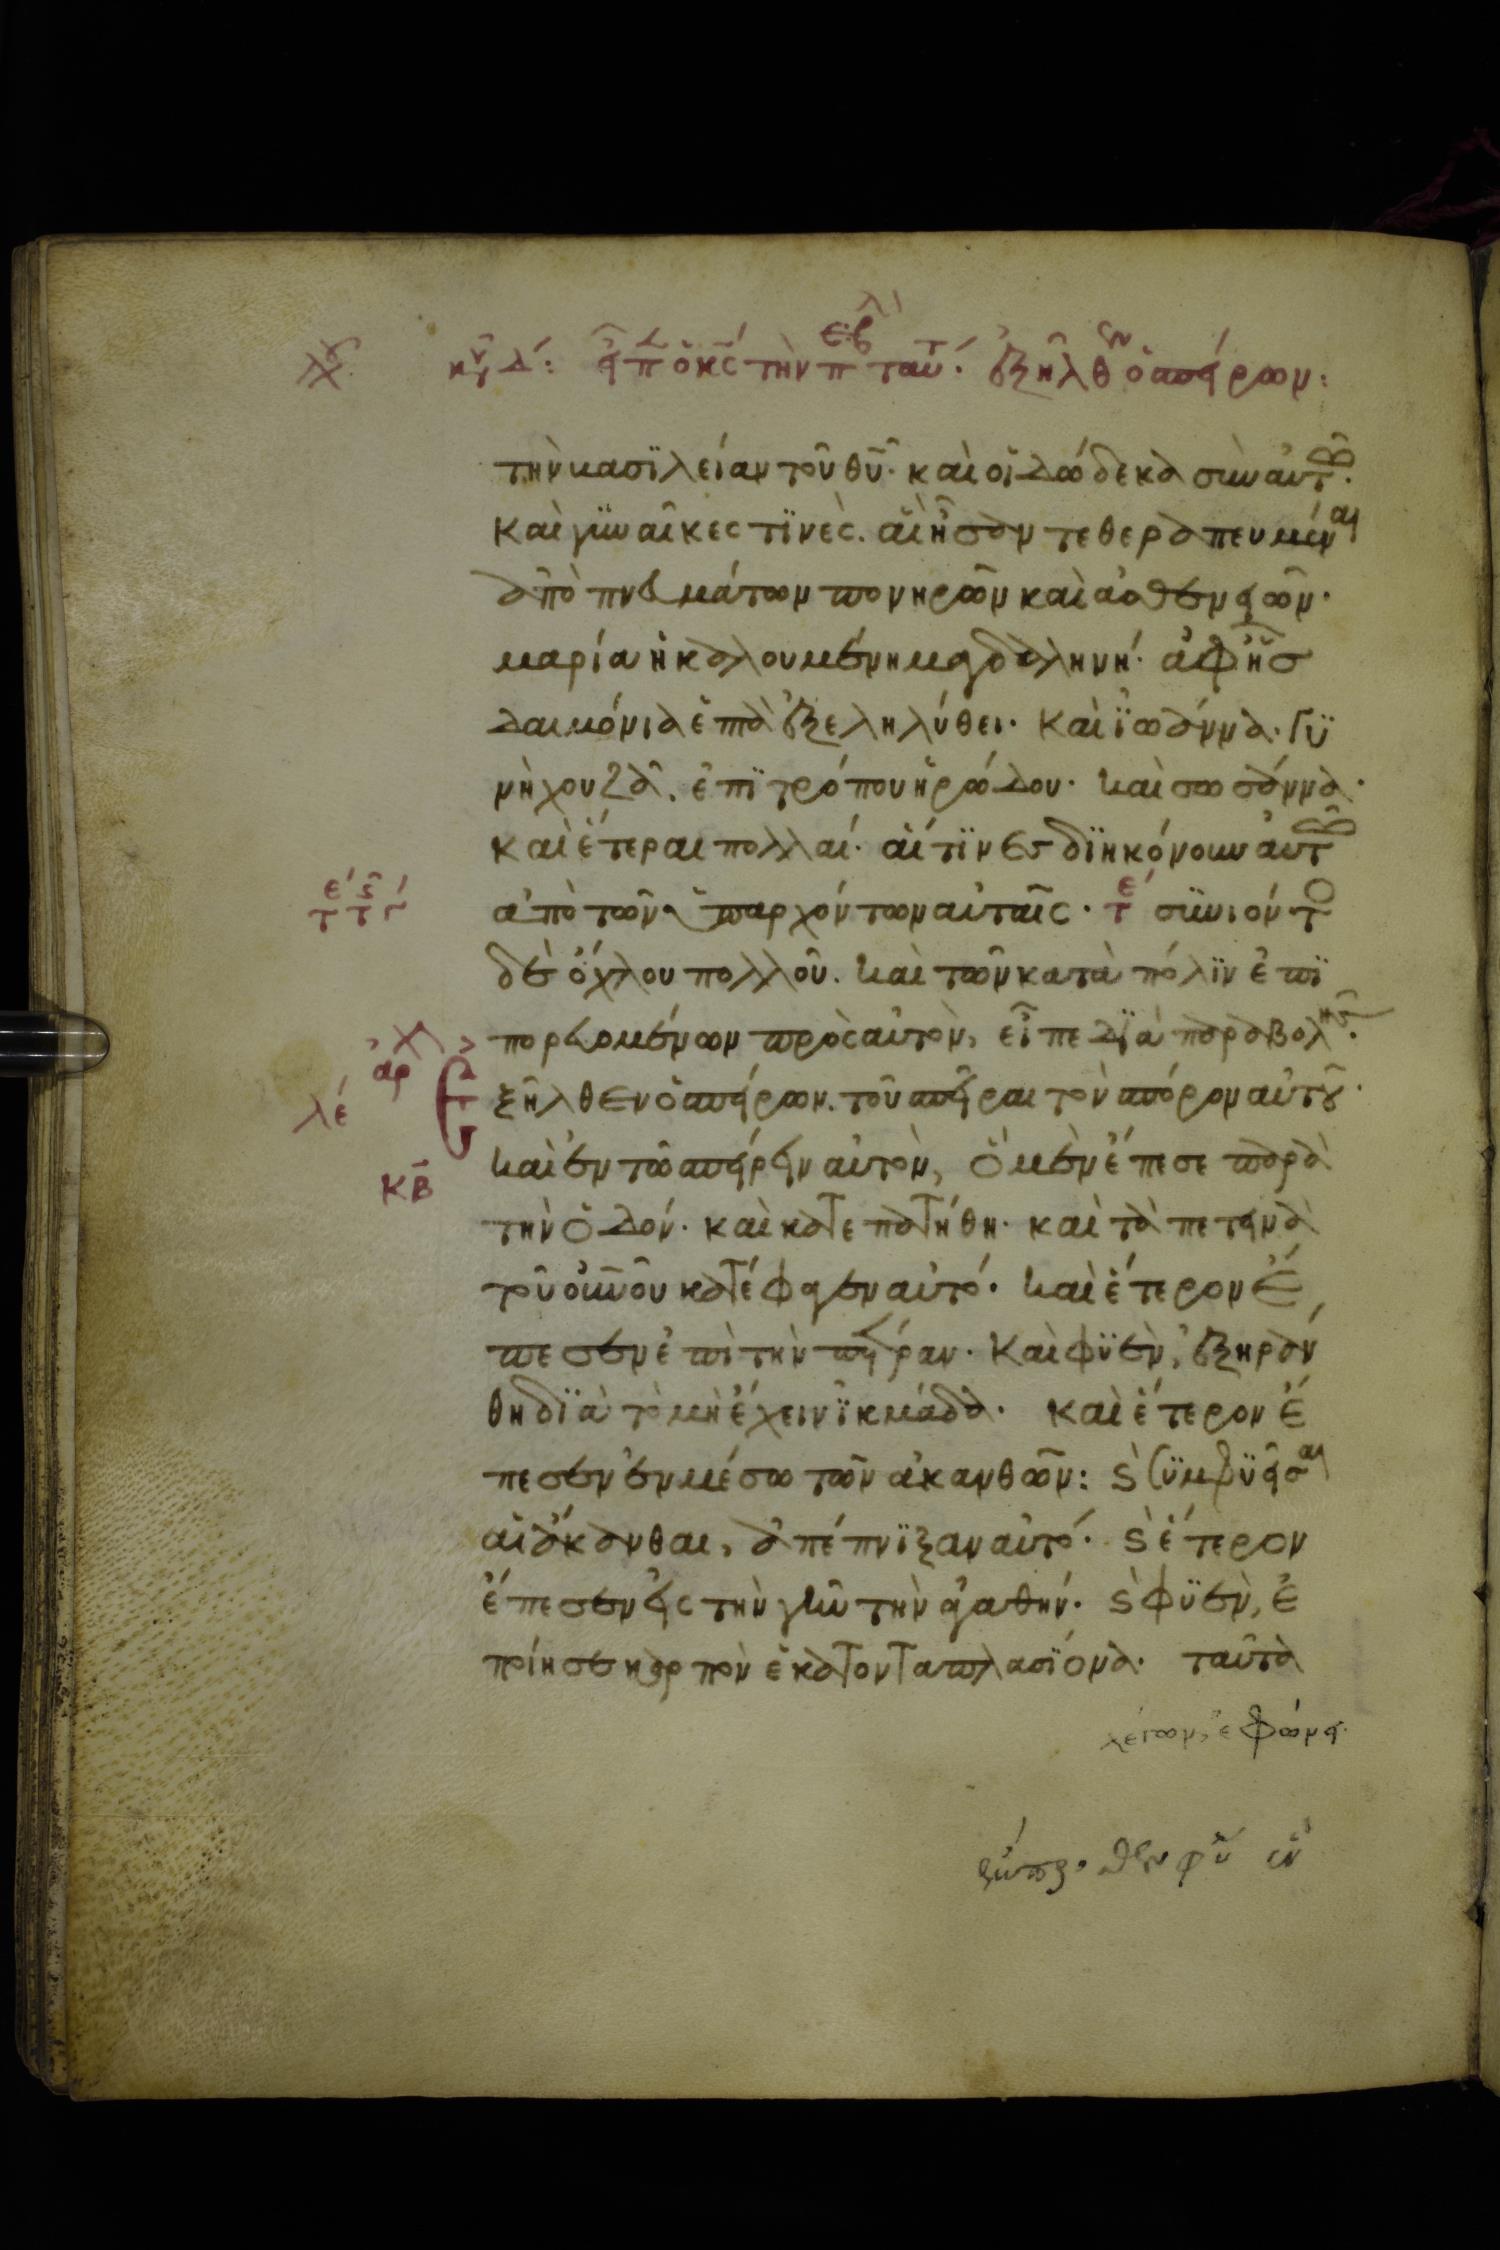 κυ δ: εἶπ ὁ κς τὴν π ταύτ. ἐξῆλθεν ὁ σπείρων:
τὴν βασϊλείαν τοῦ θῦ. καὶ οἱ δώδεκα σὺν αὐτῶ.
καὶ γϋναῖκες τϊνὲς. αἳ ἦσαν τεθεραπευμέναι
ἀπὸ πνευμάτων πονηρῶν καὶ ἀσθενειῶν.
μαρία ἡ καλουμένη μαγδαλληνή. ἀφ ἧς
δαιμόνια ἑπτὰ ἐξεληλύθει. καὶ ϊωάννα. γϋ
νὴ χουζᾶ. ἐπϊτρόπου ἡρώδου. καὶ σωσάννα.
καὶ ἕτεραι πολλαί. αἵτϊνες δϊηκόνουν αὐτῶ
ἀπὸ τῶν ὑπαρχόντων αὐταῖς. τε συνιόντο
δὲ ὄχλου πολλοῦ. καὶ τῶν κατὰ πόλϊν ἐπϊ
πορευομένων πρὸς αὐτὸν, εἶπε δϊὰ παραβολῆς.
ξῆλθεν ὁ σπείρων. τοῦ σπεῖραι τὸν σπόρον αὐτοῦ.
καὶ ἐν τῶ σπείρειν αὐτὸν, ὃ μὲν ἔπεσε παρὰ
τὴν ὁδόν. καὶ κατεπατήθη. καὶ τὰ πετεινὰ
τοῦ οὐνοῦ κατέφαγεν αὐτό. καὶ ἕτερον ἔ
πεσεν ἐπὶ τὴν πέτραν. καὶ φϋὲν, ἐξηράν
θη δϊὰ τὸ μὴ ἔχειν ϊκμάδα. καὶ ἕτερον ἔ
πεσεν ἐν μέσω τῶν ἀκανθῶν: ϛ συμφυεῖσαι
αἱ ἄκανθαι, ἀπέπνϊξαν αὐτό. ϛ ἕτερον
ἔπεσεν εἰς τὴν γῆν τὴν ἀγαθήν. ϛ φϋὲν, ἐ
ποίησε καρπὸν ἑκατονταπλασϊόνα. ταῦτα
λέγων, ἐφώνει.
λέ
κβ